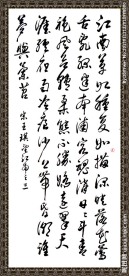 江南草如種复如描深映落花鶯
舌亂綠連南浦客魂消日日斗青
袍風欲轉柔態不勝嬌遠翠天
涯經夜雨冷痕沙上帶昏潮誰
夢與蘭苕
宋王琪望江南之三